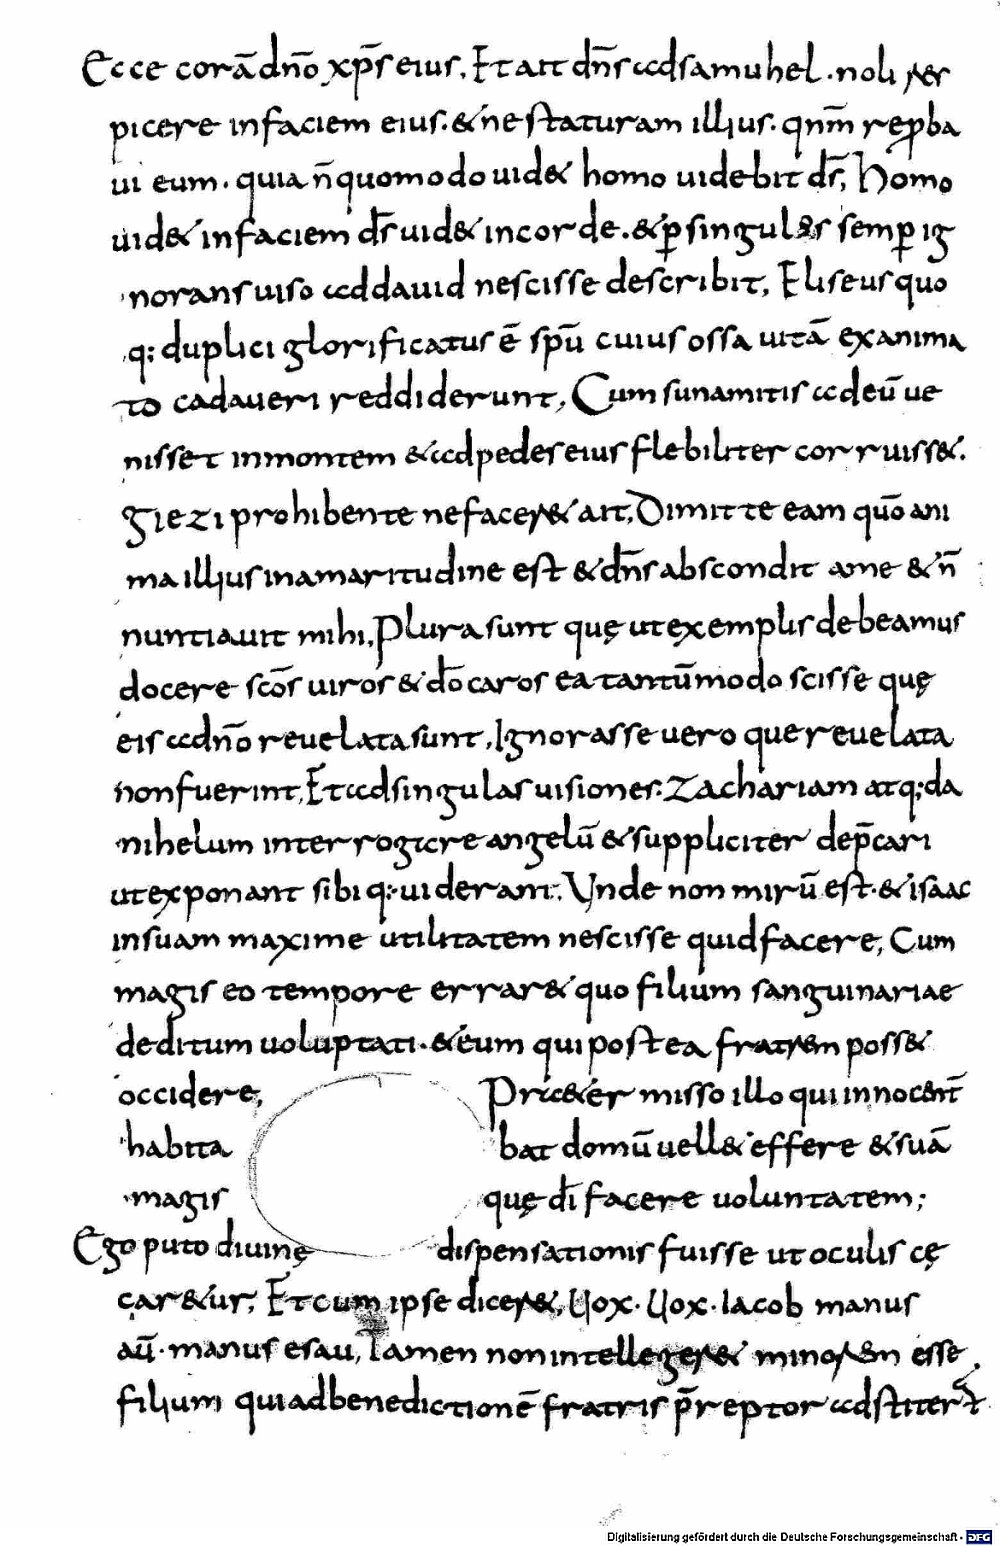 Ecce corā dn̄o xp̄s eius, Et ait dn̄s ad samuhel. noli res
picere in faciem eius. & ne staturam illius. qn̄m reproba
ui eum. quia n̄ quomodo uid& homo uidebit ds̄, Homo
uid& in faciem ds̄ uid& in corde. & p̱ singul&s semp̱ ig
norans uiso ad dauid nescisse describit, Eliseus quo
q; duplici glorificatus ē sp̄u cuius ossa uitā exanima
to cadaueri reddiderunt, Cum sunamitis ad eū ue
nisset in montem & ad pedes eius flebiliter corruiss&.
giezi prohibente ne facer& ait, Dimitte eam quō ani
ma illius in amaritudine est & dn̄s abscondit a me & n̄
nuntiauit mihi, Plura sunt quę ut exemplis debeamus
docere scōs uiros & dō caros ea tantūmodo scisse quę
eis ad dn̄o reuelata sunt, Ignorasse uero que reuelata
non fuerint, Et ad singulas uisiones: Zachariam atq; da
nihelum interrogare angelū & suppliciter dep̄cari
ut exponant sibi q; uiderant, Unde non mirū est. & isaac
in suam maxime utilitatem nescisse quid facere, Cum
magis eo tempore errar& quo filium sanguinariae
deditum uoluptati. & eum qui postea fratrem poss&
occidere, Pric&er misso illo qui innocent̄
habita bat domū uell& efferre & suā
magis quę dī facere uoluntatem;
Ego puto diuinę dispensationis fuisse ut oculis cę
car&ur, Et cum ipse dicer&, Uox. Uox. Iacob manus
aū. manus esau, Tamen non intelleger& minorem esse
filium qui ad benedictionē fratris p̄reptor adstiter&
Digitalisierung gefördert durch die Deutsche Forschungsgemeinschaft - DFG